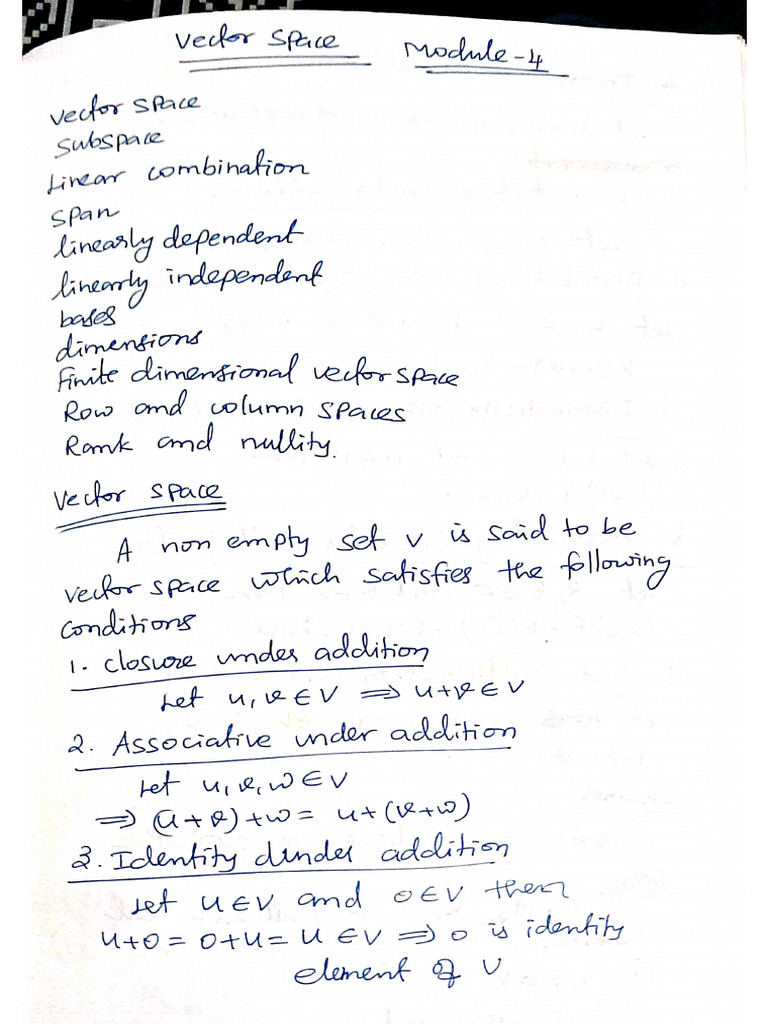 Vector Space Module-4
Vector Space
Subspace
Linear combination
Span
linearly dependent
linearly independent
bases
dimensions
Finite dimensional vector space
Row and column spaces
Rank and nullity.
Vector space
A non empty set V is said to be
vector space which satisfies the following
conditions
1. Closure under addition
Let u, v ∈ V ⟹ u+v ∈ V
2. Associative under addition
Let u, v, w ∈ V
⟹ (u+v)+w = u+(v+w)
3. Identity under addition
Let u ∈ V and 0 ∈ V then
u+0 = 0+u = u ∈ V ⟹ 0 is identity
element of V